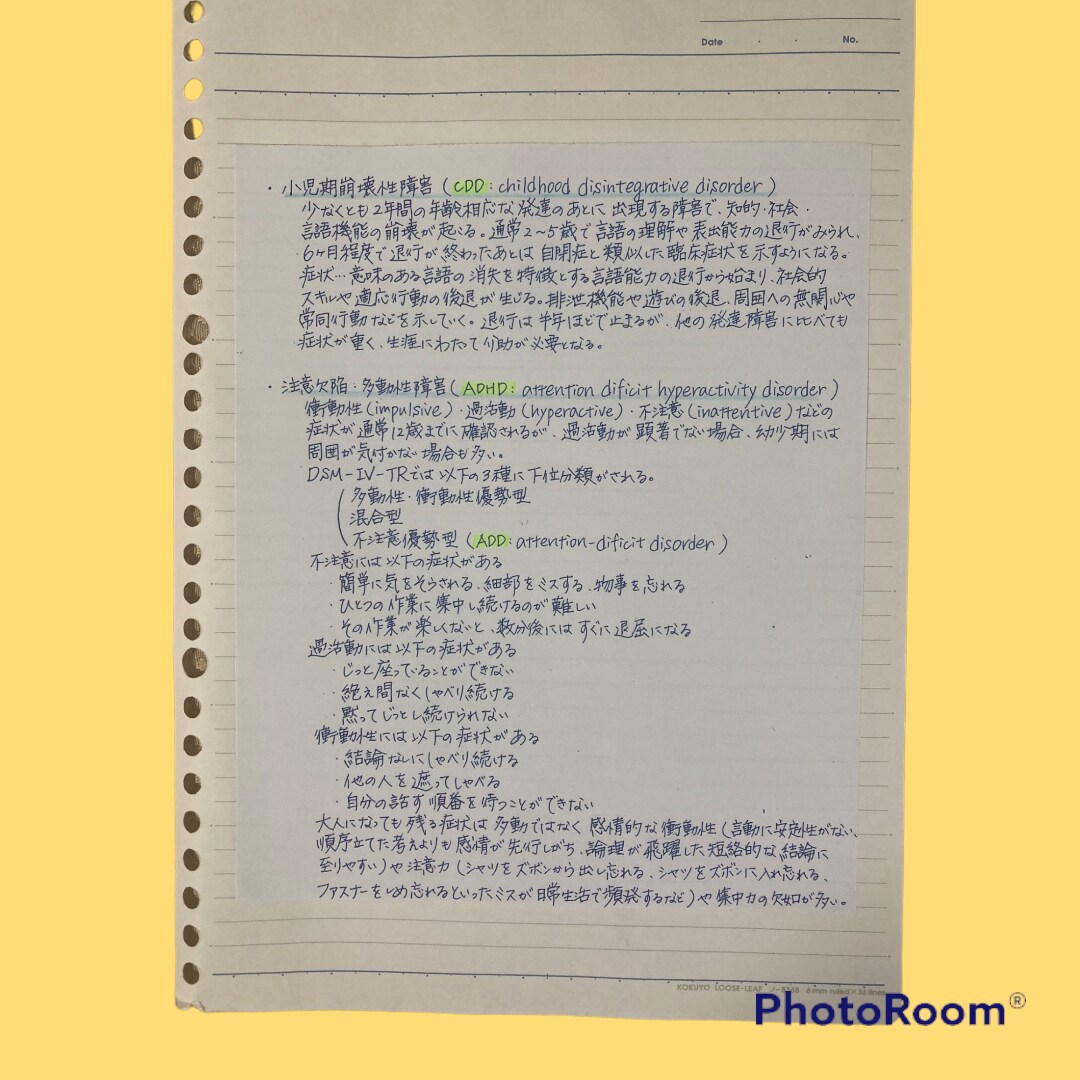 Date ・ ・ No.
・小児期崩壊性障害(CDD: childhood disintegrative disorder)
少なくとも2年間の年齢相応な発達のあとに出現する障害で、知的・社会・
言語機能の崩壊が起こる。通常2~5歳で言語の理解や表出能力の退行がみられ、
6ヶ月程度で退行が終わったあとは自閉症と類似した臨床症状を示すようになる。
症状…意味のある言語の消失を特徴とする言語能力の退行から始まり、社会的
スキルや適応行動の後退が生じる。排泄機能や遊びの後退、周囲への無関心や
常同行動などを示していく。退行は半年ほどで止まるが、他の発達障害に比べても
症状が重く、生涯にわたって助が必要となる。
・注意欠陥・多動性障害(ADHD: attention dificit hyperactivity disorder)
衝動性(impulsive)・過活動(hyperactive)・不注意(inattentive)などの
症状が通常12歳までに確認されるが、過活動が顕著でない場合、幼少期には
周囲が気付かない場合も多い。
DSM-IV-TRでは以下の3種に下位分類がされる。
多動性・衝動性優勢型
混合型
不注意優勢型(ADD: attention-dificit disorder)
不注意には以下の症状がある
・簡単に気をそらされる、細部をミスする、物事を忘れる
・ひとつの作業に集中し続けるのが難しい
・その作業が楽しくないと、数分後にはすぐに退屈になる
過活動には以下の症状がある
・じっと座っていることができない
・絶え間なくしゃべり続ける
・黙ってじっとし続けられない
衝動性には以下の症状がある
・結論なしにしゃべり続ける
・他の人を遮ってしゃべる
・自分の話す順番を待つことができない
大人になっても残る症状は多動ではなく感情的な衝動性(言動に安定性がない、
順序立てた考えよりも感情が先行しがち、論理が飛躍した短絡的な結論に
至りやすい)や注意力(シャツをズボンから出し忘れる、シャツをズボンに入れ忘れる、
ファスナーをしめ忘れるといったミスが日常生活で頻発するなど)や集中力の欠如が多い。
KOKUYO LOOSE-LEAF 6mm ruled×36 lines
PhotoRoom®